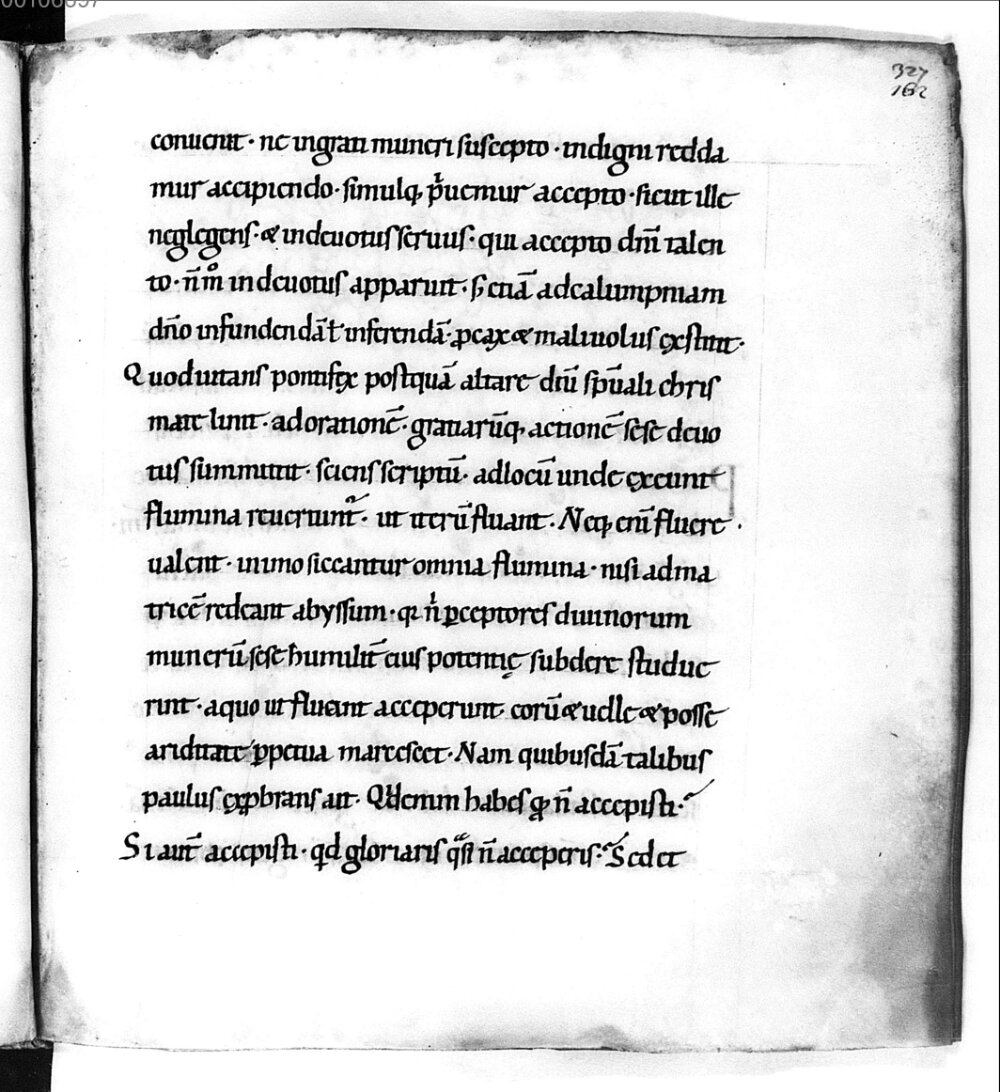 00106697
327
162
conuenit · ne ingrati muneri suscepto · indigni redda
mur accipiendo · simulq; p̍uemur accepto · sicut ille
neglegens · & indeuotus seruus · qui accepto dn̄i talen
to · n̄ m̊ indeuotus apparuit · s; etiā ad calumpniam
dn̄o infundendā ł inferendā · ꝓcax & maliuolus ęxstitit ·
Quod uitans pontifęx postquā altare dn̄i sp̄uali chris
mate linit · ad orationē · gratiarūq; actionē sese deuo
tus summittit · sciens scriptū · ad locū unde ęxeunt
flumina reuertunt᷑ · ut iterū fluant · Neq; enī fluere ·
ualent · immo siccantur omnia flumina · nisi ad ma
tricē redeant abyssum · q̨ n̍ p̱ceptores diuinorum
munerū sese humilit̄ eius potentię subdere studue
rint · a quo ut fluerent acceperunt eorū & uelle & posse
ariditate ꝑpetua marcescet · Nam quibusdā talibus
paulus ęxꝓbrans ait · Qd̄ enim habes qđ n̄ accepisti ·
Si aut̄ accepisti · qd gloriaris qͣsi n̄ acceperis · Sed et